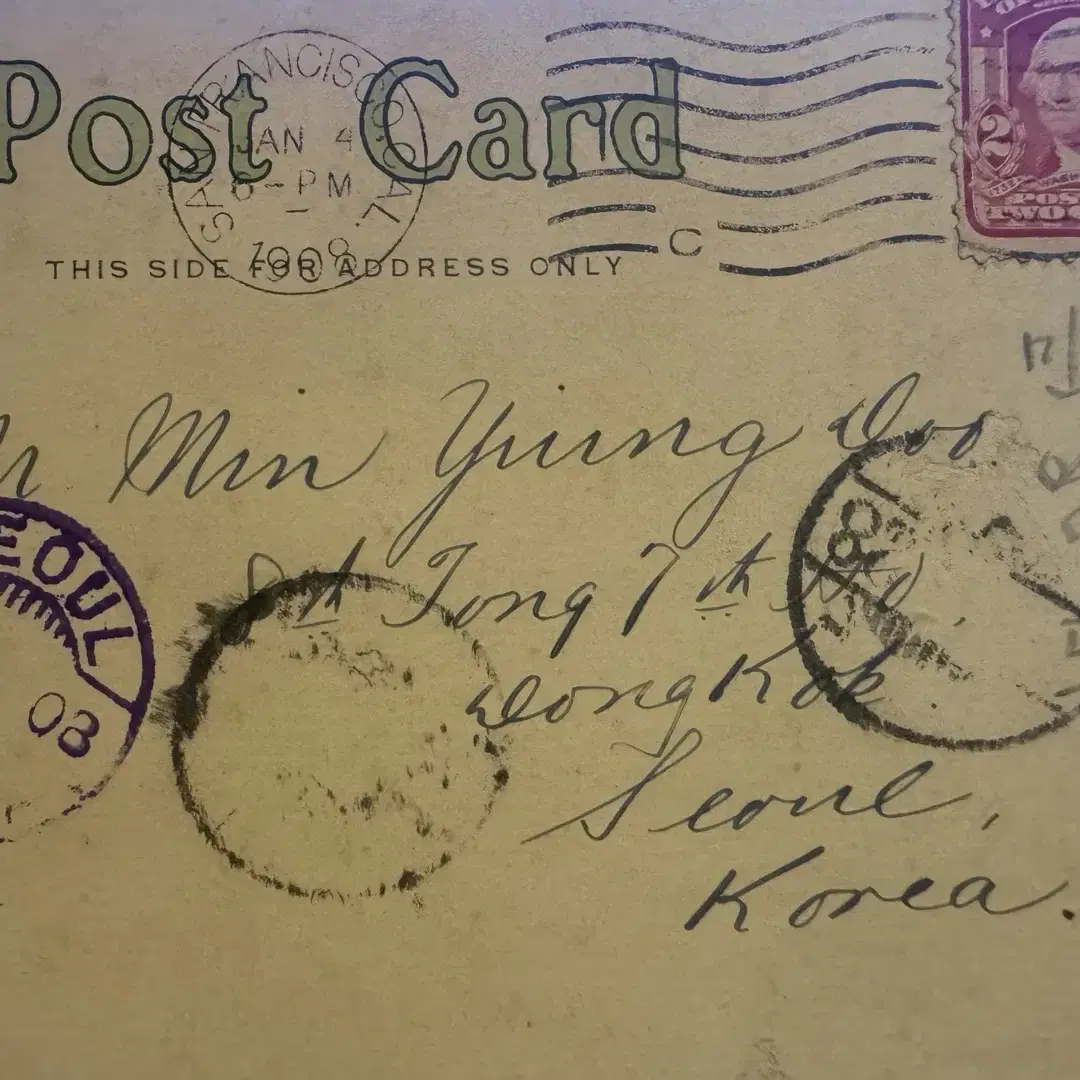 Post Card
SAN FRANCISCO, CAL.
JAN 4
-PM
1908
THIS SIDE FOR ADDRESS ONLY
C
2
TWO
Min Yiung Doo
Tong 7th No
Dong Kok
Seoul,
Korea.
SEOUL
08
민